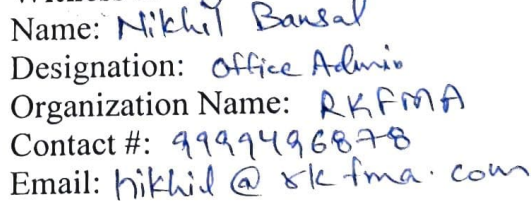 Name: Nikhil Bansal
Designation: Office Admin
Organization Name: RKFMA
Contact #: 9999496878
Email: nikhil @ rkfma.com